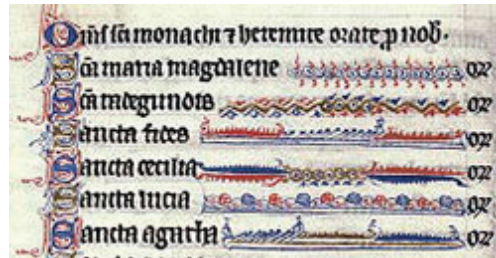 Om̄s sc̄i monachi ⁊ heremite orate ꝓ nob̄.
Sc̄a maria magdalene or̄
Sc̄a radegundis or̄
Sancta fides or̄
Sancta cecilia or̄
Sancta lucia or̄
Sancta agatha or̄